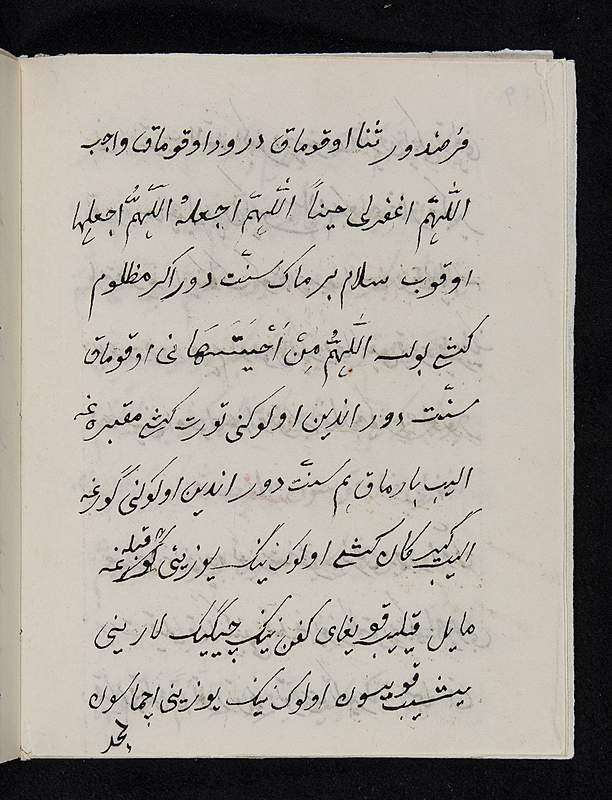 فرضدور ثنا اوقوماق درود اوقوماق واجب
اللّٰهمّ اغفرلی حیناً اللّٰهمّ اجعلهُ اللّٰهمّ اجعلها
اوقوب سلام برماک سنّت دور اکر مظلوم
کشی بولسه اللّٰهمُّ مِنْ اَحْیَیْتَهَا نی اوقوماق
سنّت دور اندین اولوکنی تورت کشی مقبره غه
الیب بارماق هم سنّت دور اندین اولوکنی گورغه
الیب کیرکان کشی اولوک نینک یوزینی قبله غه
مایل قیلیب قویغای کفن نینک چیگیک لارینی
یشیب قویسون اولوک نینک یوزینی اچماسون